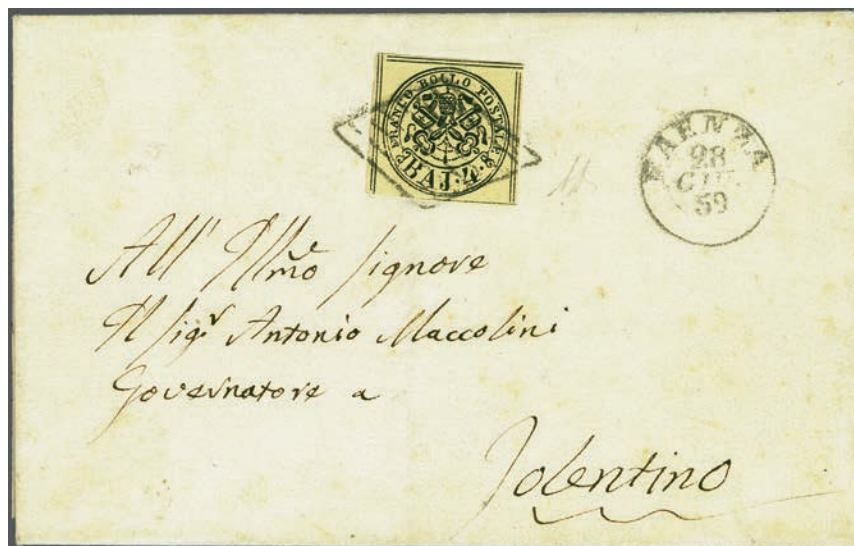 FRANCO BOLLO POSTALE
BAJ: 4.
FAENZA
28
GIU.
59
All' Illmo Signore
Il Sigr Antonio Maccolini
Governatore a
Tolentino